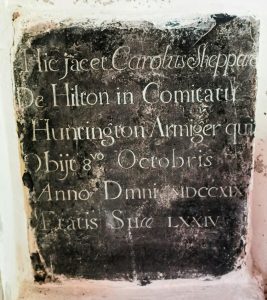 Hic jacet Carolus Sheppard
De Hilton in Comitatu
Huntington Armiger qui
Obijt 8vo Octobris
Anno Dmni MDCCXIX
Ætatis Suæ LXXIV